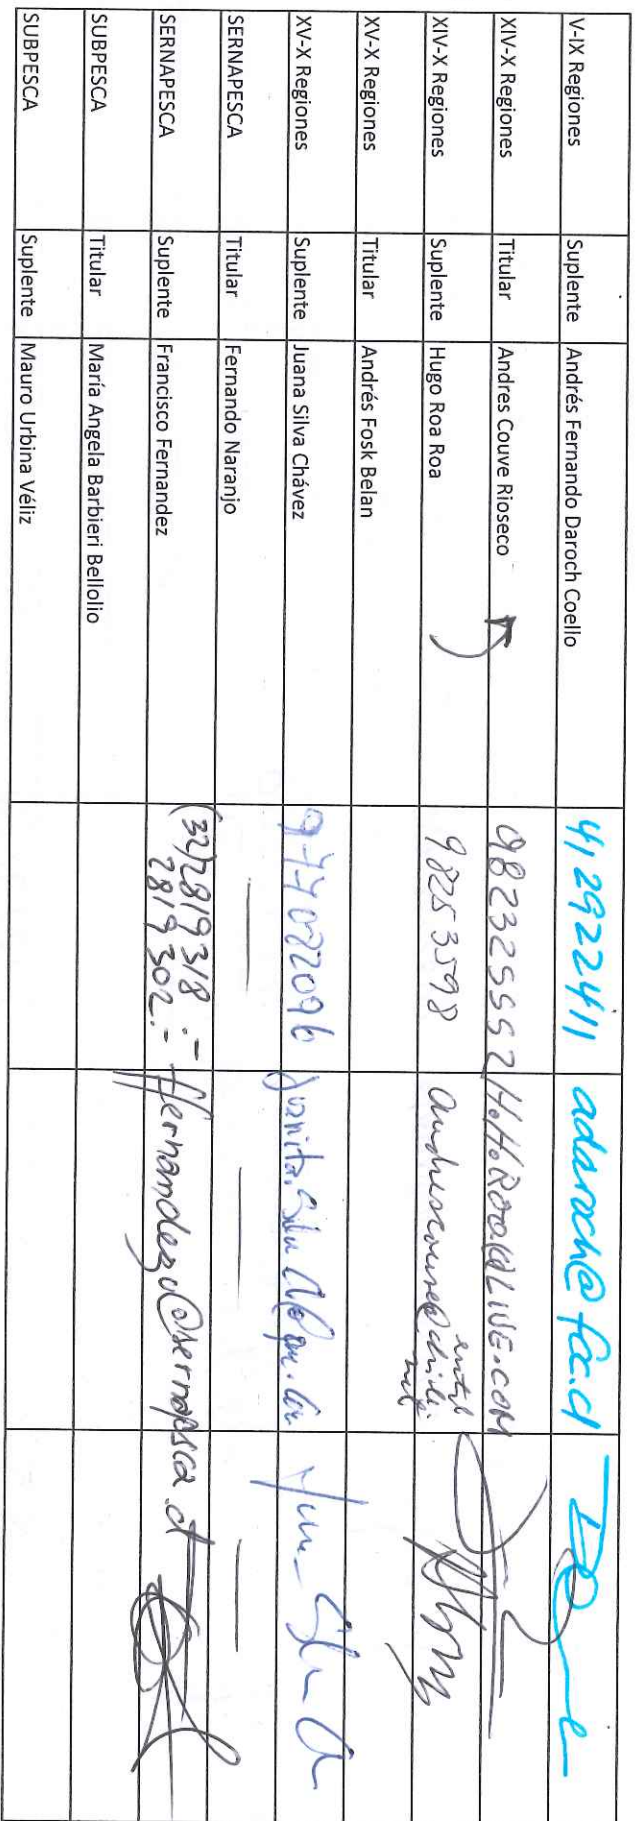 V-IX Regiones Suplente Andrés Fernando Daroch Coello 41 2922411 adaroch@fcc.cl
XIV-X Regiones Titular Andres Couve Rioseco 982325552 H.H.ROA@LIVE.COM
XIV-X Regiones Suplente Hugo Roa Roa 98253598
XV-X Regiones Titular Andrés Fosk Belan
XV-X Regiones Suplente Juana Silva Chávez
SERNAPESCA Titular Fernando Naranjo — — —
SERNAPESCA Suplente Francisco Fernandez (32) 2819318 :- ffernandezv@sernapesca.cl
2819302.-
SUBPESCA Titular María Angela Barbieri Bellolio
SUBPESCA Suplente Mauro Urbina Véliz